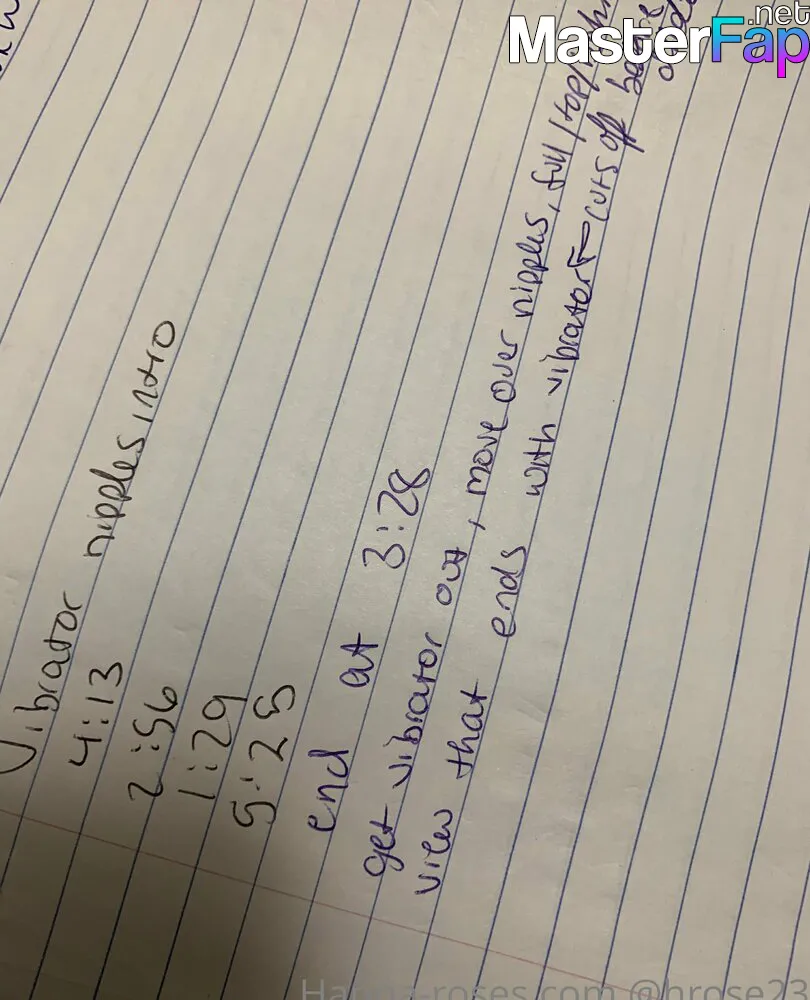 MasterFap
.net
Vibrator nipples intro
4:13
2:56
1:29
5:25
end at 3:28
get vibrator out, move over nipples, full/top/
view that ends with vibrator ← cuts off
Hanna-roses.com @hrose23